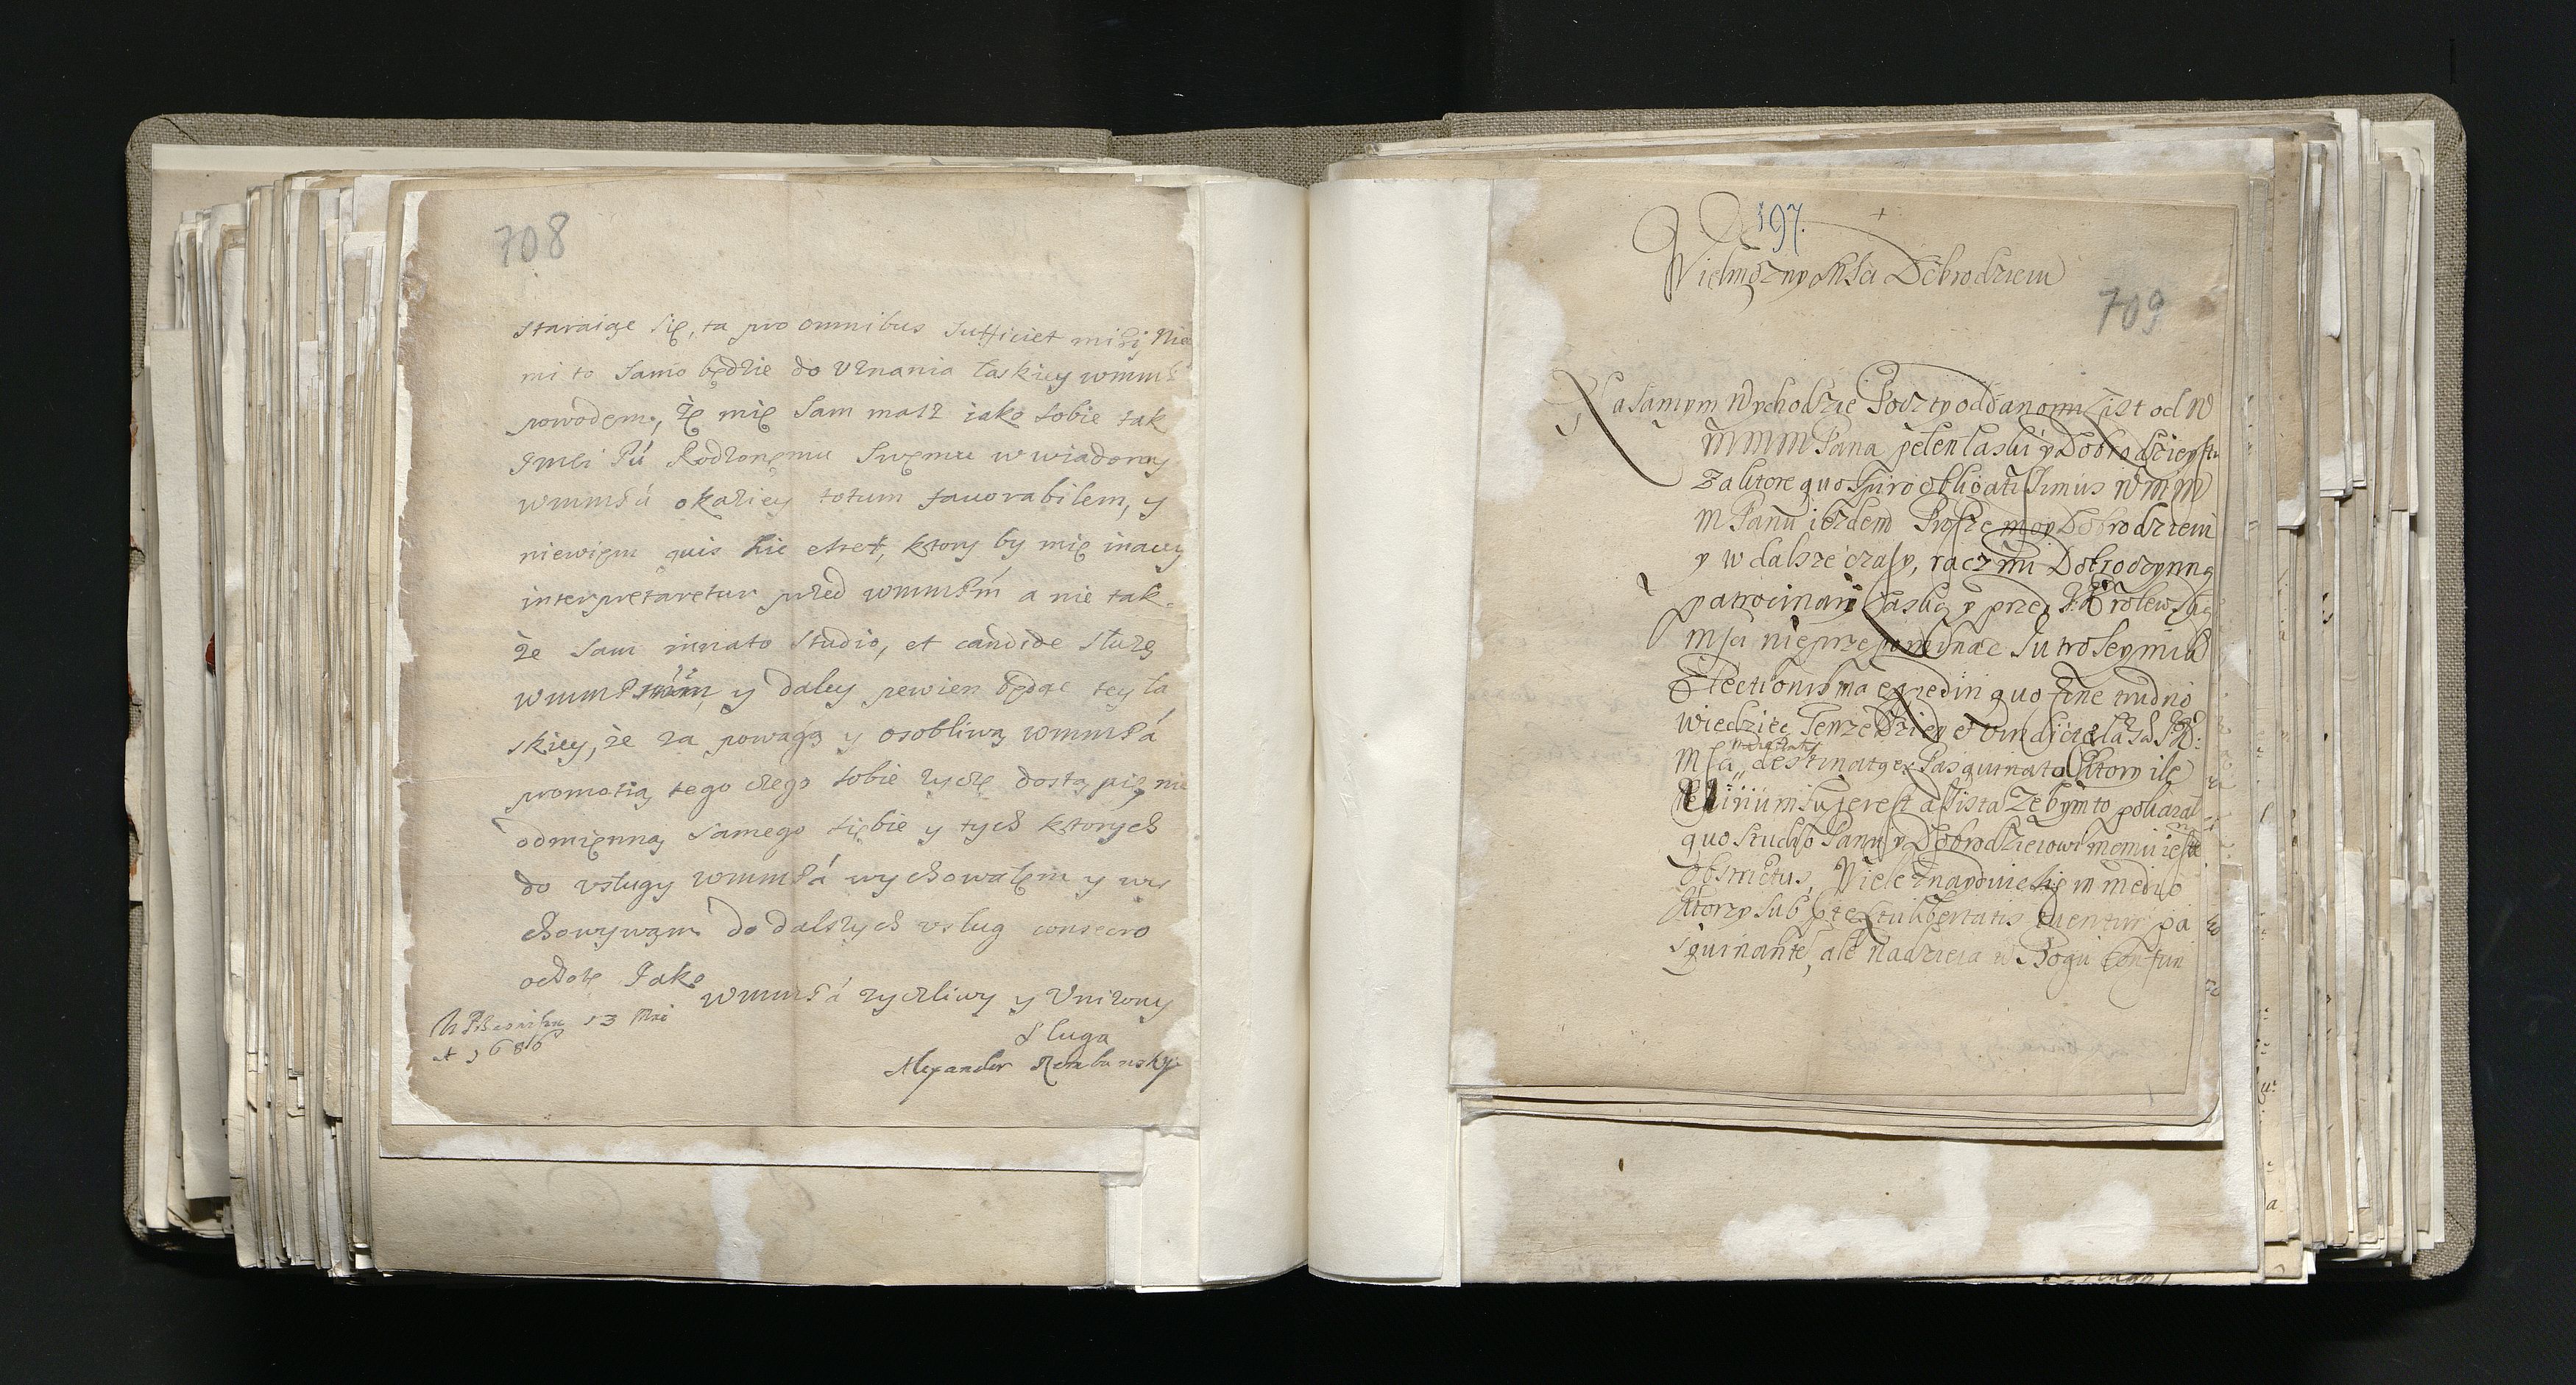 708
staraiąc się, ta pro omnibus sufficiet mihi, Nie
mi to samo będzie do uznania łaskiey wmmP
powodem, że mię sam masz iako sobie tak
Imci Pú Rodzonemu Swemu w wiadomy
wmmPú okaziey totum favorabilem, y
niewiem quis hic esset, ktory by mię inaczy
interpretaretur przed wmmPm a nie tak
że sam innato studio, et candide służę
wmmP y daley pewien będąc tey ła
skiey, że za powagą y osobliwą wmmPá
promotią tego czego sobie życzę dostąpię, nie
odmienną samego siebie y tych ktorych
do usługy wmmPá wychowałem y wy
chowywam do dalszych usług consecro
ochotę Jako
wmmPá życzliwy y Uniżony
Sluga
13 Mai
A 1686
Alexander
197.
Wielmozny Msci Dobrodzieiu
709
Na samym wychodzie Poczty oddano mi list od W
M M M Pana pelen laski y Dobrodzieystw
za ktore quo spiro obligatissimus W M M
M Panu iestem Prosze moy Dobrodzieiu
y w dalsze czasy, racz mi Dobroczynną
patrocinari laską y przed J. K Krolewską
Mscią nieprzepominac Jutro Seymik
Electionis ma egredi in quo fine trudno
wiedziec Tenze Dzien et vindiciae
Msci destinatus ex Pasquinata ktory ile
superest assista zebym to pokazal
quo studio Panu y Dobrodzieiowi memu iestem
obstrictus, Wiele znayduie się in medio
ktorzy sub praetextu libertatis tuentur pa
squinante, ale nadzieia w Bogu